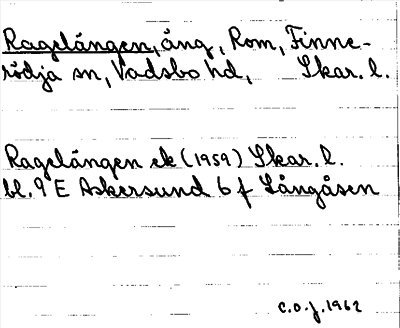 Ragelången, äng, Rom, Finne-
rödja sn, Vadsbo hd, Skar. l.
Ragelängen ek (1959) Skar. l.
bl. 9 E Askersund 6 f Långåsen
C.O.J. 1962